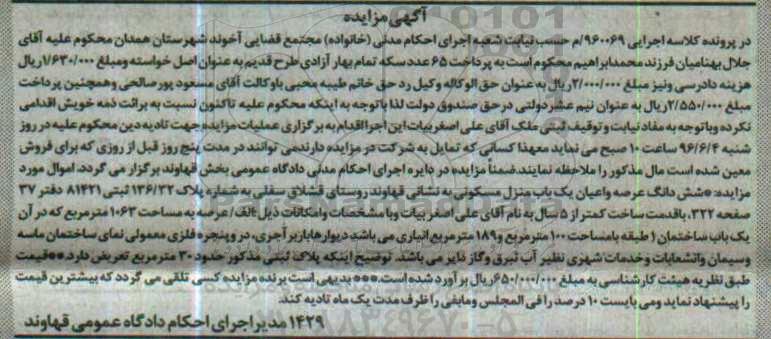 آگهی مزایده
در پرونده کلاسه اجرایی ۹۶۰۰۶۹/م حسب نیابت شعبه اجرای احکام مدنی (خانواده) مجتمع قضایی آخوند شهرستان همدان محکوم علیه آقای
جلال بهنامیان فرزند محمدابراهیم محکوم است به پرداخت ۶۵ عدد سکه تمام بهار آزادی طرح قدیم به عنوان اصل خواسته ومبلغ ۱/۶۳۰/۰۰۰ریال
هزینه دادرسی ونیز مبلغ ۲/۰۰۰/۰۰۰ریال به عنوان حق الوکاله وکیل رد حق خانم طیبه محبی باوکالت آقای مسعود پورصالحی وهمچنین پرداخت
مبلغ ۲/۵۵۰/۰۰۰ریال به عنوان نیم عشر دولتی در حق صندوق دولت لذا باتوجه به اینکه محکوم علیه تاکنون نسبت به برائت ذمه خویش اقدامی
نکرده وباتوجه به مفاد نیابت و توقیف ثبتی ملک آقای علی اصغر بیات این اجرا اقدام به برگزاری عملیات مزایده جهت تادیه دین محکوم علیه در روز
شنبه ۹۶/۶/۴ ساعت ۱۰ صبح می نماید معهذا کسانی که تمایل به شرکت در مزایده دارند می توانند در مدت پنج روز قبل از روزی که برای فروش
معین شده است مال مذکور را ملاحظه نمایند.ضمناً مزایده در دایره اجرای احکام مدنی دادگاه عمومی بخش قهاوند برگزار می گردد. اموال مورد
مزایده: *شش دانگ عرصه واعیان یک باب منزل مسکونی به نشانی قهاوند روستای قشلاق سفلی به شماره پلاک ۱۳۶/۳۲ ثبتی ۸۱۴۲۱ دفتر ۳۷
صفحه ۳۲۲، باقدمت ساخت کمتر از ۵ سال به نام آقای علی اصغر بیات وبا مشخصات وامکانات ذیل:الف/ عرصه به مساحت ۱۰۶۳ مترمربع که در آن
یک باب ساختمان ۱ طبقه بامساحت ۱۰۰ مترمربع و۱۸۹ مترمربع انباری می باشد دیوارها باربر آجری، در وپنجره فلزی معمولی نمای ساختمان ماسه
وسیمان وانشعابات وخدمات شهری نظیر آب ،برق وگاز دایر می باشد. توضیح اینکه پلاک ثبتی مذکور حدود ۳۰ مترمربع تعریض دارد.**قیمت
طبق نظریه هیئت کارشناسی به مبلغ ۶۵۰/۰۰۰/۰۰۰ریال برآورد شده است.*** بدیهی است برنده مزایده کسی تلقی می گردد که بیشترین قیمت
را پیشنهاد نماید ومی بایست ۱۰ درصد را فی المجلس ومابقی را ظرف مدت یک ماه تادیه کند.
۱۴۲۹ مدیر اجرای احکام دادگاه عمومی قهاوند
ParsNamadData